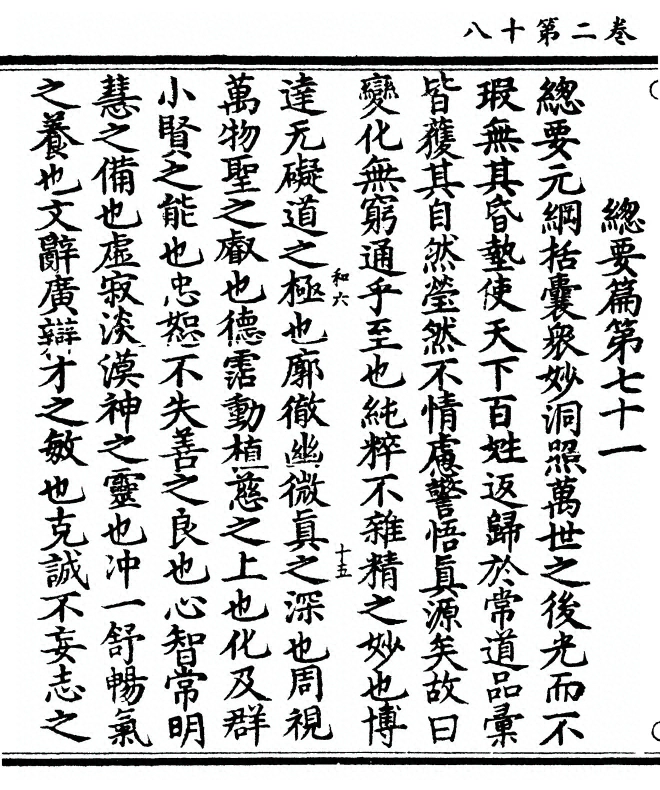 八十第二卷
總要篇第七十一
總要元綱括囊衆妙洞照萬世之後光而不
瑕無其昏墊使天下百姓返歸於常道品彙
皆蒦其自然瑩然不情慮警悟眞源矣故曰
變化無窮通乎至也純粹不雜精之妙也博
和六
十五
達无礙道之極也廓徹幽微眞之深也周視
萬物聖之叡也德霑動植慈之上也化及群
小賢之能也忠恕不失善之良也心智常明
慧之備也虛寂淡漠神之靈也冲一舒暢氣
之養也文辭廣辯才之敏也克誠不妄志之